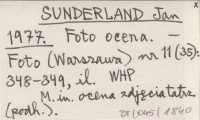 x
SUNDERLAND Jan
1977 Foto ocena. –
Foto (Warszawa) nr 11 (35):
348-349, il. WHP
M. in. ocena zdjęcia tatrz.
(podh.).
DI/045/1840